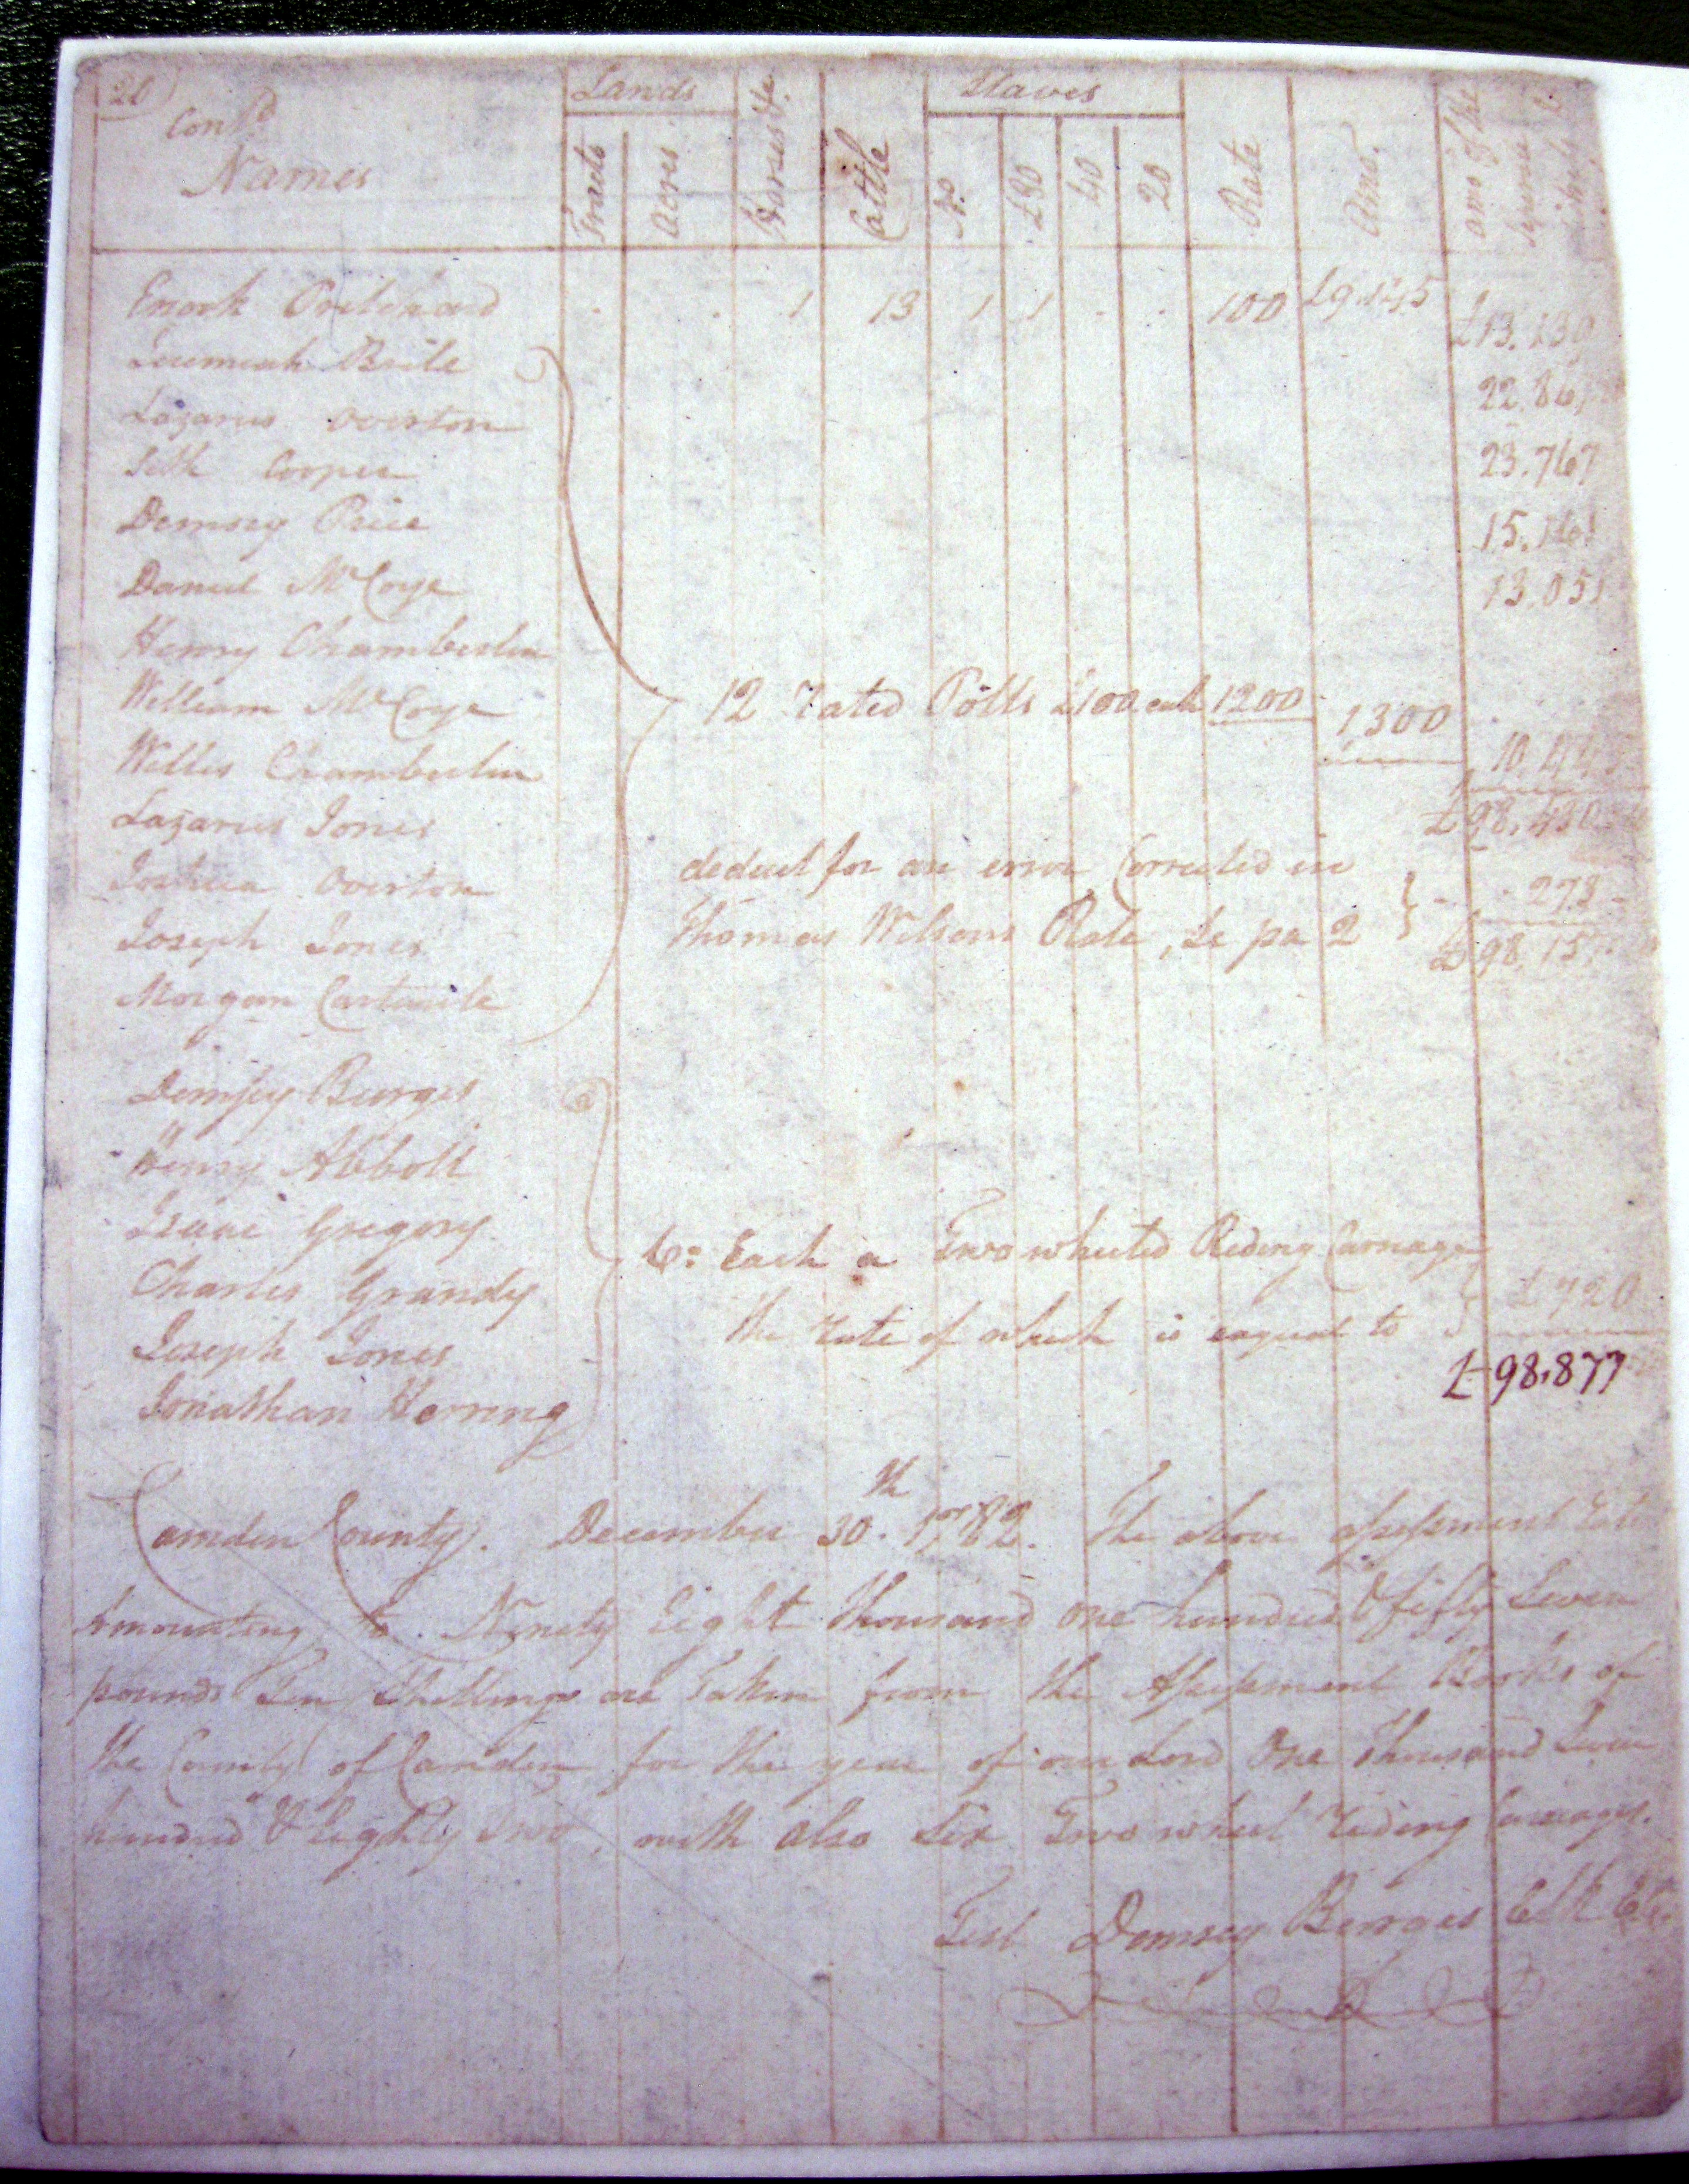 20
Cont'd
Names
Lands
Tracts
Acres
Horses &c.
Cattle
Slaves
No.
£80
40
20
Rate
Amo.
Enock Pritchard . . 1 13 1 1 . . 100 £13.130
Jeremiah Brite 22.867
Lazarus Overton 23.767
Seth Cooper 15.161
Demsey Price 13.051
Daniel McCoye
Henry Chamberlin
William McCoye 12 rated Polls £100 each 1200 1300
Willis Chamberlin
Lazarus Jones £98,430
Joshua Overton deduct for an error Corrected in 273
Joseph Jones Thomas Wilsons Rate, Se pa 2 £98,157
Morgan Cartwrite
Demsey Burges
Henry Abbott
Isaac Gregory
Charles Grandy 6: Each a Two wheeled Riding Carriage
Joseph Jones the rate of which is eaqual to £720
Jonathan Herring £98,877
Camden County. December 30th. 1782. The above assessment
Amounting to Ninety Eight Thousand one hundred & fifty Seven
pounds Ten Shillings are Taken from the Assessment Books of
the County of Camden for the year of our Lord One Thousand Seven
hundred & Eighty Two, with also Six Two wheel riding Carriages.
Test Demsey Burges Clk